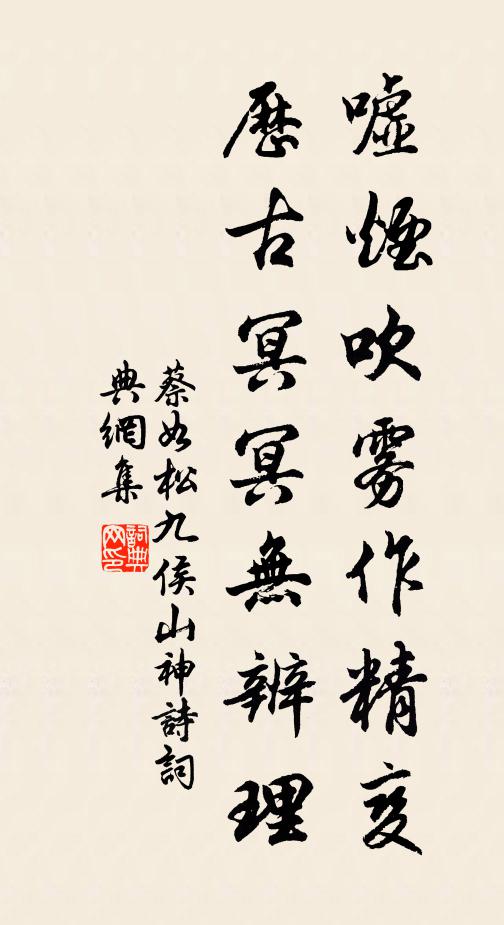 噓煙吹雾作精变
歷古冥冥無辨理
蔡如松九侯山神詩詞
典網集
詞典
网印